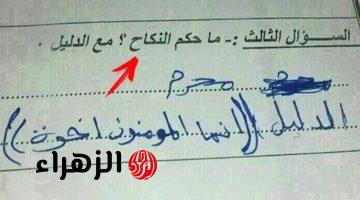 السؤال الثالث :- ما حكم النكاح ؟ مع الدليل .
محرم
الدليل ((انما المومنون اخوة))
الزهراء